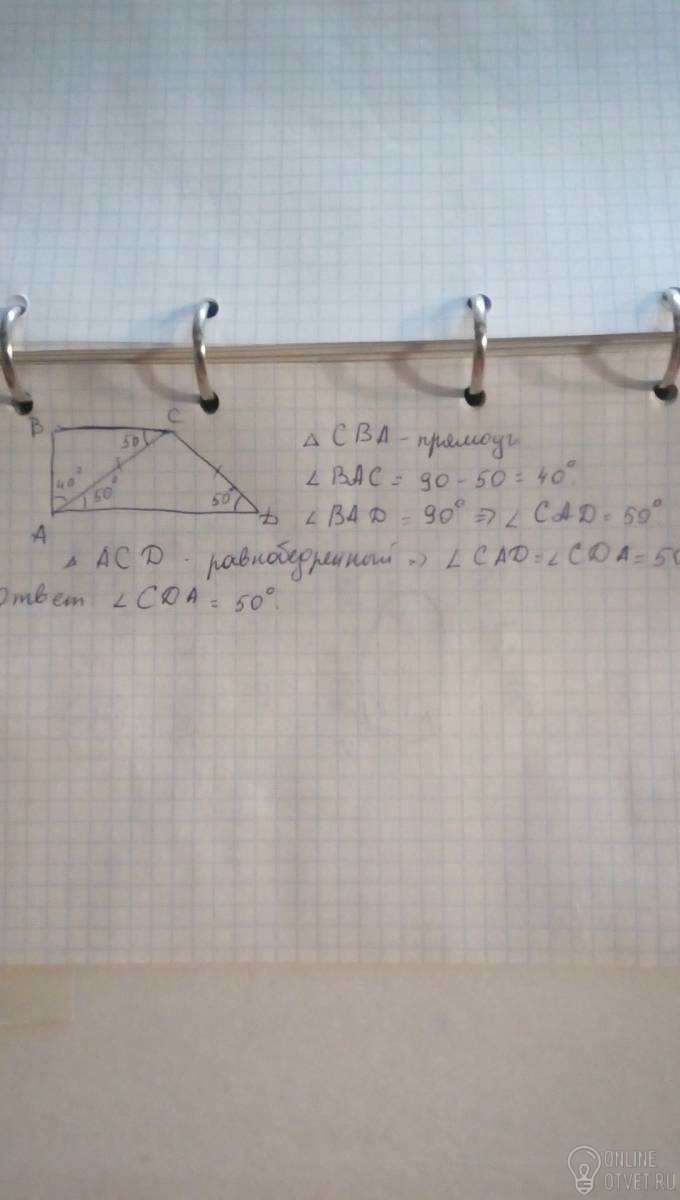 B
C
50
40°
50°
50°
A
D
△ CBA - прямоуг.
∠ BAC = 90 - 50 = 40°
∠ BAD = 90° ⇒ ∠ CAD = 50°
△ ACD - равнобедренный ⇒ ∠ CAD = ∠ CDA = 50
Ответ ∠ CDA = 50°.
ONLINE
OTVET.RU